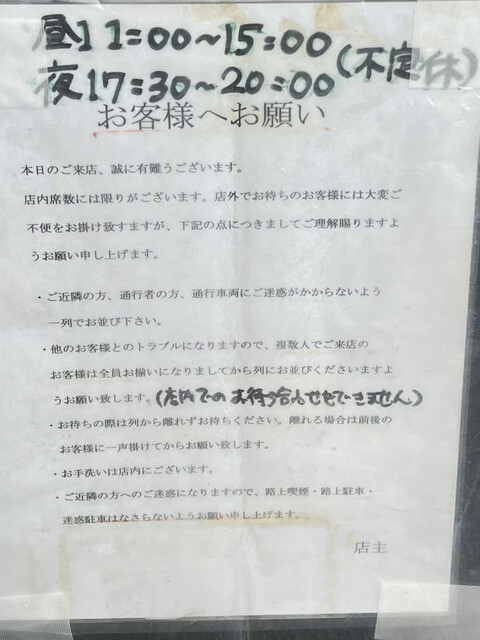 昼11:00~15:00
夜17:30~20:00(不定休)
お客様へお願い
本日のご来店、誠に有難うございます。
店内席数には限りがございます。店外でお待ちのお客様には大変ご
不便をお掛け致すますが、下記の点につきましてご理解賜りますよ
うお願い申し上げます。
・ご近隣の方、通行者の方、通行車両にご迷惑がかからないよう
一列でお並び下さい。
・他のお客様とのトラブルになりますので、複数人でご来店の
お客様は全員お揃いになりましてから列にお並びくださいますよ
うお願い致します。(店内でのお待ち合わせもできません)
・お待ちの際は列から離れずお待ちください。離れる場合は前後の
お客様に一声掛けてからお願い致します。
・お手洗いは店内にございます。
・ご近隣の方へのご迷惑になりますので、路上喫煙・路上駐車・
迷惑駐車はなさらないようお願い申し上げます。
店主